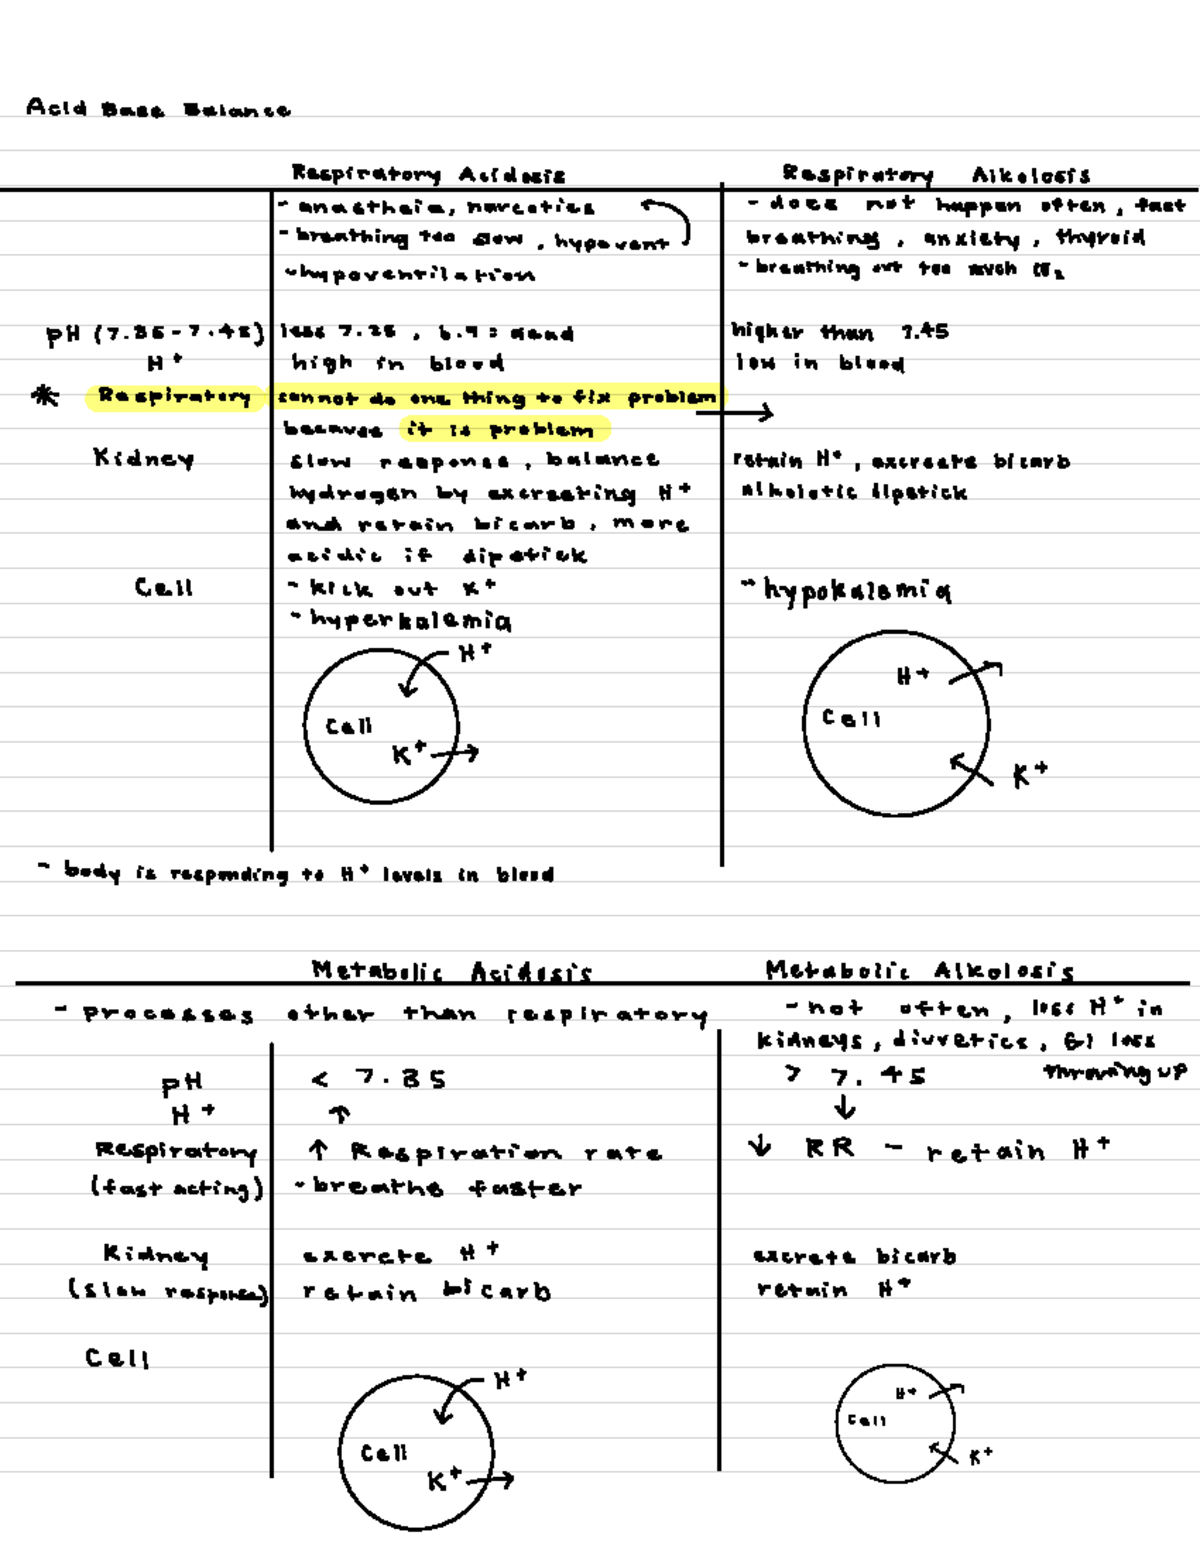 Acid Base Balance
Respiratory Acidosis
Respiratory Alkolosis
- anaesthsia, narcotics
- breathing too slow, hypovent
- hypoventilation
- does not happen often, fast
breathing, anxiety, thyroid
- breathing out too much CO2
pH (7.35-7.45)
less 7.35, 6.9 = dead
higher than 7.45
H+
high in blood
low in blood
* Respiratory
cannot do one thing to fix problem →
because it is problem
Kidney
slow response, balance
hydrogen by excreating H+
and retain bicarb, more
acidic if dipstick
retain H+, excreate bicarb
alkolotic dipstick
Cell
- kick out K+
- hyperkalemia
- hypokalemia
H+
Cell
K+ →
H+
Cell
K+
- body is responding to H+ levels in blood
Metabolic Acidosis
Metabolic Alkolosis
- processes other than respiratory
- not often, loss H+ in
kidneys, diuretics, GI loss
throwing up
pH
< 7.35
> 7.45
H+
↑
↓
Respiratory
(fast acting)
↑ Respiration rate
- breathe faster
↓ RR - retain H+
Kidney
(slow response)
excrete H+
retain bicarb
excrete bicarb
retain H+
Cell
H+
Cell
K+ →
H+
Cell
K+